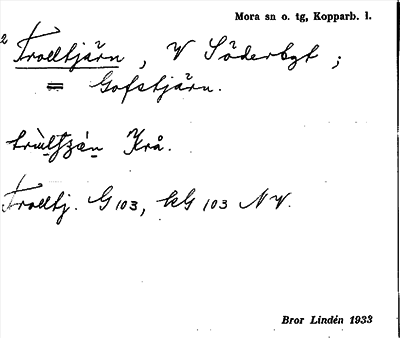 Mora sn o. tg, Kopparb. l.
2 Trolltjärn, V Söderbyt ;
= Gofstjärn.
Krå.
Trolltj. G 103, kG 103 NV.
Bror Lindén 1933